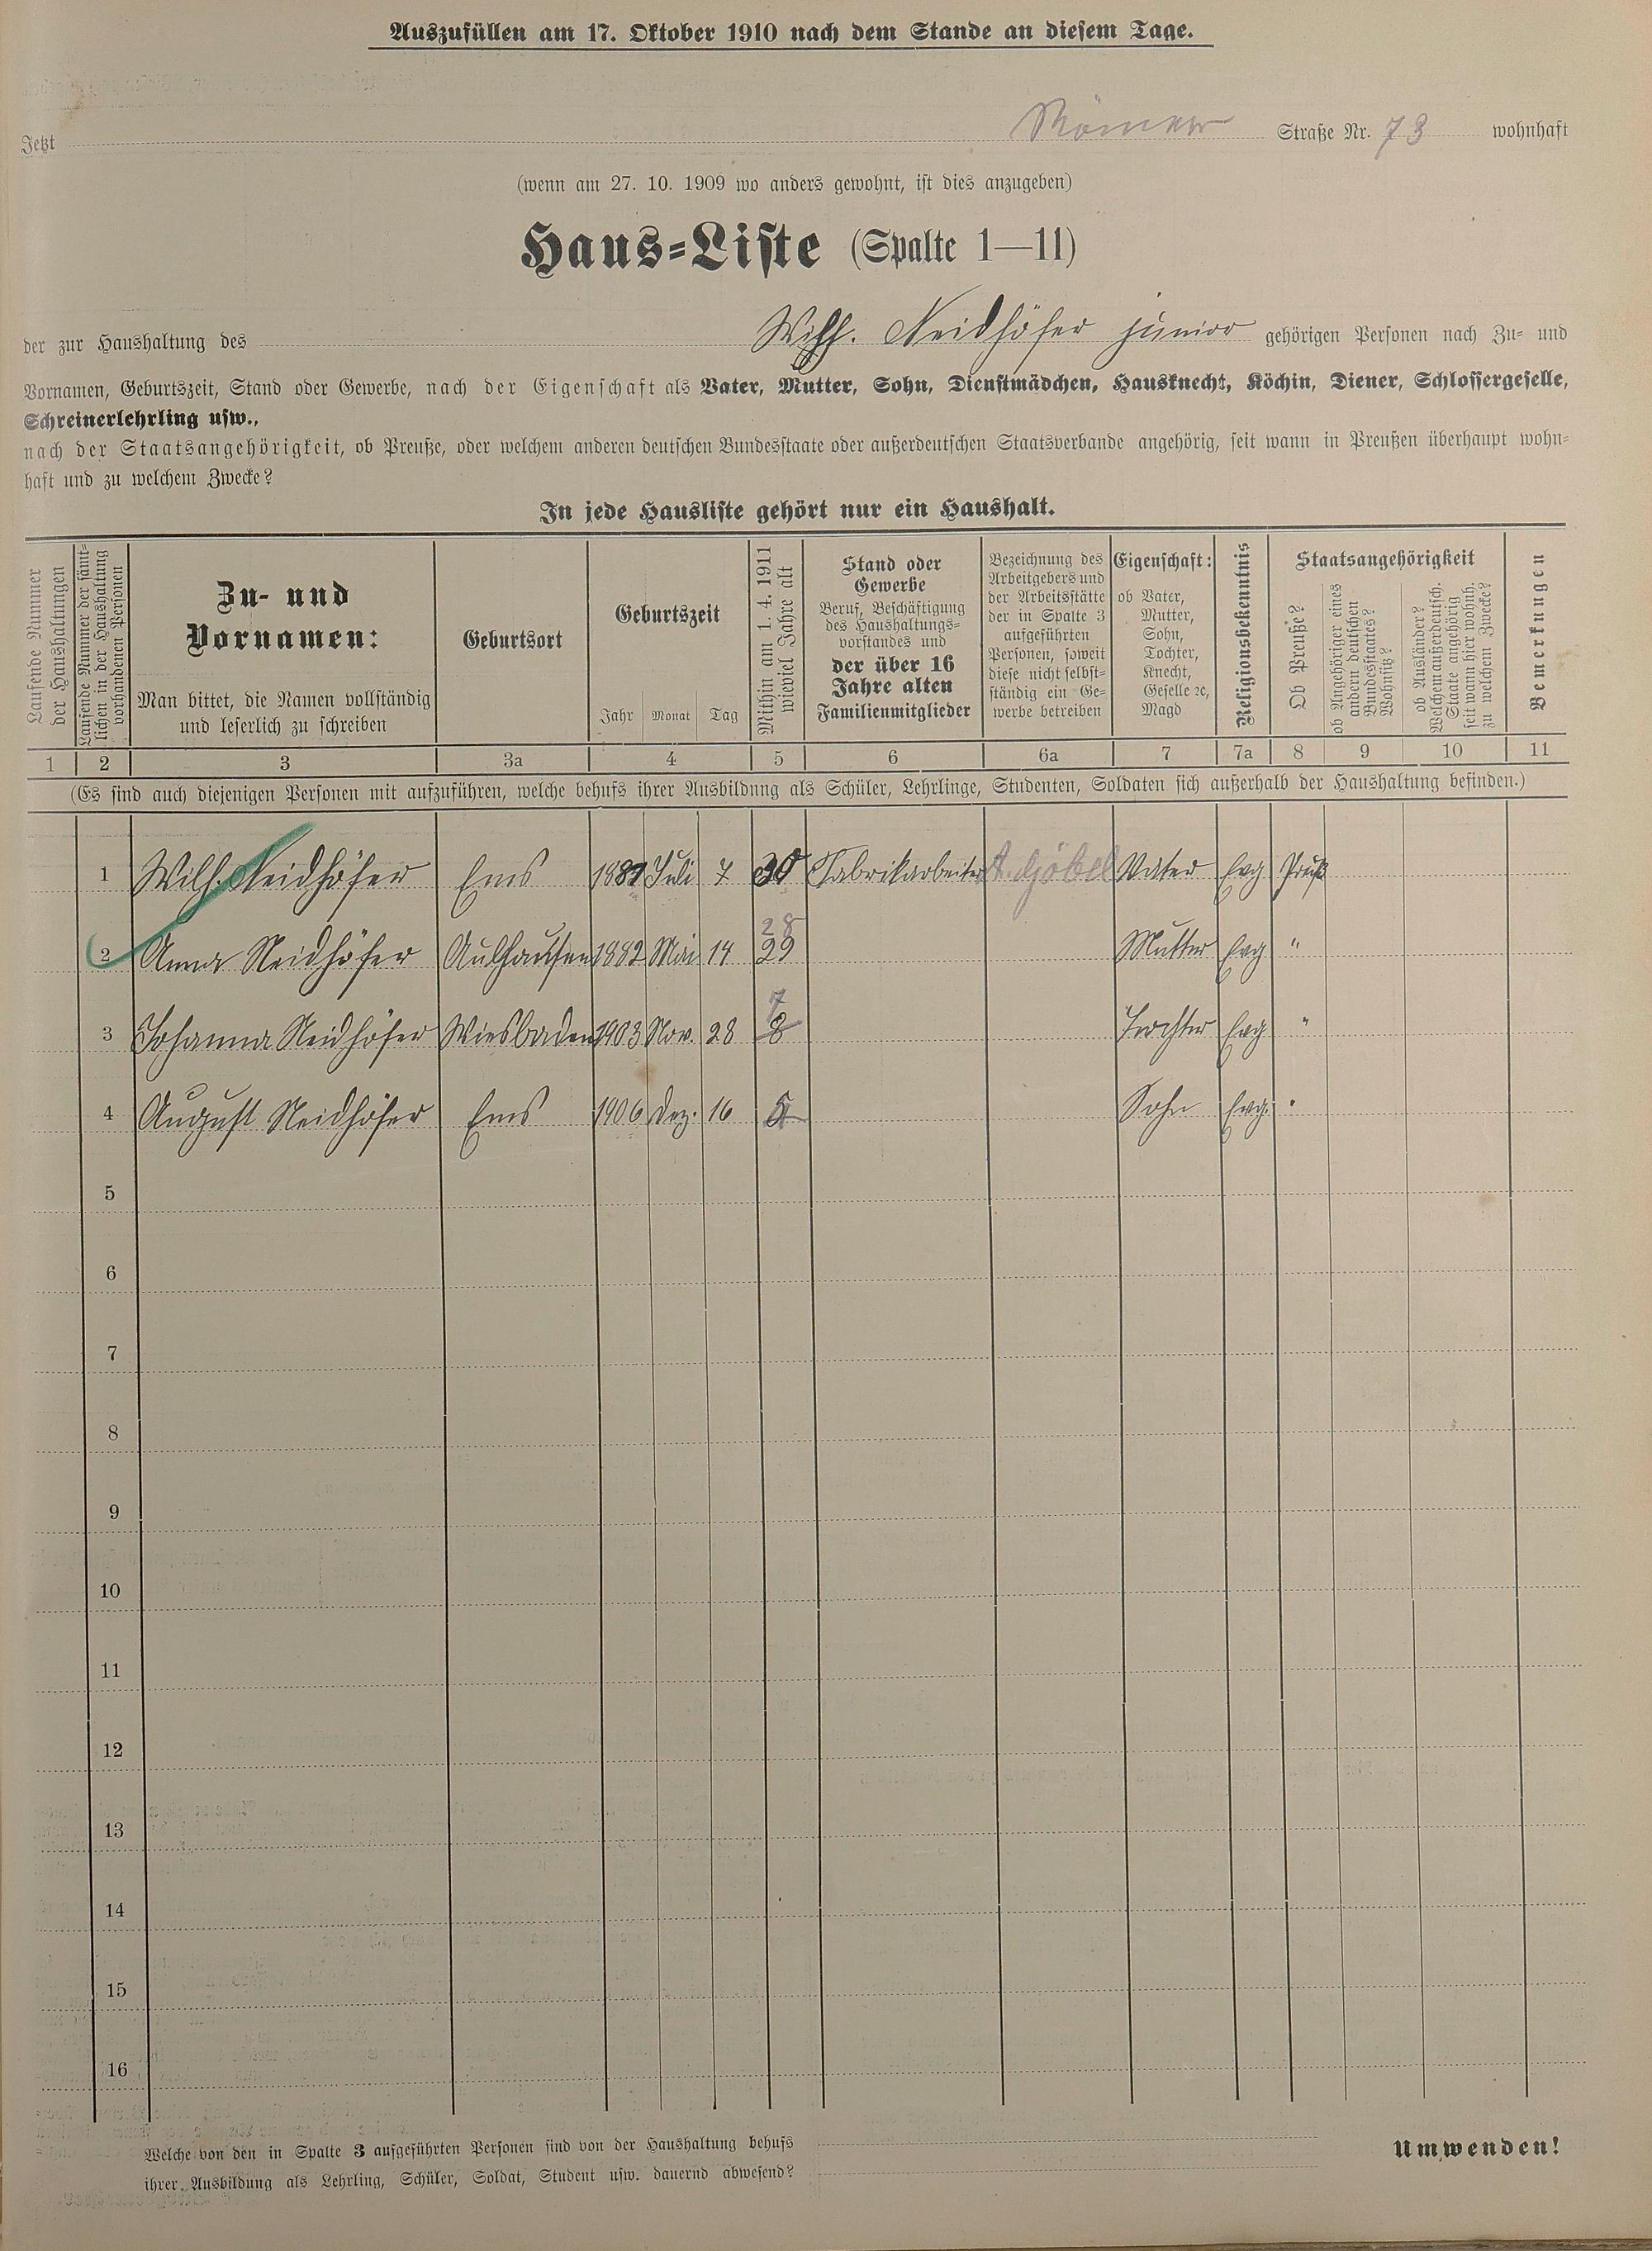 Auszufüllen am 17. Oktober 1910 nach dem Stande an diesem Tage.
Jetzt Römer Straße Nr. 73 wohnhaft
(wenn am 27. 10. 1909 wo anders gewohnt, ist dies anzugeben)
Haus-Liste (Spalte 1—11)
der zur Haushaltung des Wilh. Neidhöfer junior gehörigen Personen nach Zu- und
Vornamen, Geburtszeit, Stand oder Gewerbe, nach der Eigenschaft als Vater, Mutter, Sohn, Dienstmädchen, Hausknecht, Köchin, Diener, Schlossergeselle,
Schreinerlehrling usw.,
nach der Staatsangehörigkeit, ob Preuße, oder welchem anderen deutschen Bundesstaate oder außerdeutschen Staatsverbande angehörig, seit wann in Preußen überhaupt wohn-
haft und zu welchem Zwecke?
In jede Hausliste gehört nur ein Haushalt.
Laufende Nummer
der Haushaltungen
Laufende Nummer der sämt-
lichen in der Haushaltung
vorhandenen Personen
Zu- und
Vornamen:
Man bittet, die Namen vollständig
und leserlich zu schreiben
Geburtsort
Geburtszeit
Jahr Monat Tag
Mithin am 1. 4. 1911
wieviel Jahre alt
Stand oder
Gewerbe
Beruf, Beschäftigung
des Haushaltungs-
vorstandes und
der über 16
Jahre alten
Familienmitglieder
Bezeichnung des
Arbeitgebers und
der Arbeitsstätte
der in Spalte 3
aufgeführten
Personen, soweit
diese nicht selbst-
ständig ein Ge-
werbe betreiben
Eigenschaft:
ob Vater,
Mutter,
Sohn,
Tochter,
Knecht,
Geselle ꝛc,
Magd
Religionsbekenntnis
Staatsangehörigkeit
Ob Preuße?
ob Angehöriger eines
andern deutschen
Bundesstaates?
Wohnsitz?
ob Ausländer?
Welchem außerdeutsch.
Staate angehörig
seit wann hier wohnh.
zu welchem Zwecke?
Bemerkungen
1 2 3 3a 4 5 6 6a 7 7a 8 9 10 11
(Es sind auch diejenigen Personen mit aufzuführen, welche behufs ihrer Ausbildung als Schüler, Lehrlinge, Studenten, Soldaten sich außerhalb der Haushaltung befinden.)
1 Wilh. Neidhöfer Ems Juli 7 30 Fabrikarbeiter A. Göbel Vater Evg Preuß
28
2 Anna Neidhöfer Aulhausen 1882 Mai 14 29 Mutter Evg "
7
3 Johanna Neidhöfer Wiesbaden 1903 Nov. 28 8 Tochter Evg "
4 August Neidhöfer Ems 1906 Dez. 16 Sohn Evg. "
5
6
7
8
9
10
11
12
13
14
15
16
Welche von den in Spalte 3 aufgeführten Personen sind von der Haushaltung behufs
ihrer Ausbildung als Lehrling, Schüler, Soldat, Student usw. dauernd abwesend?
Umwenden!